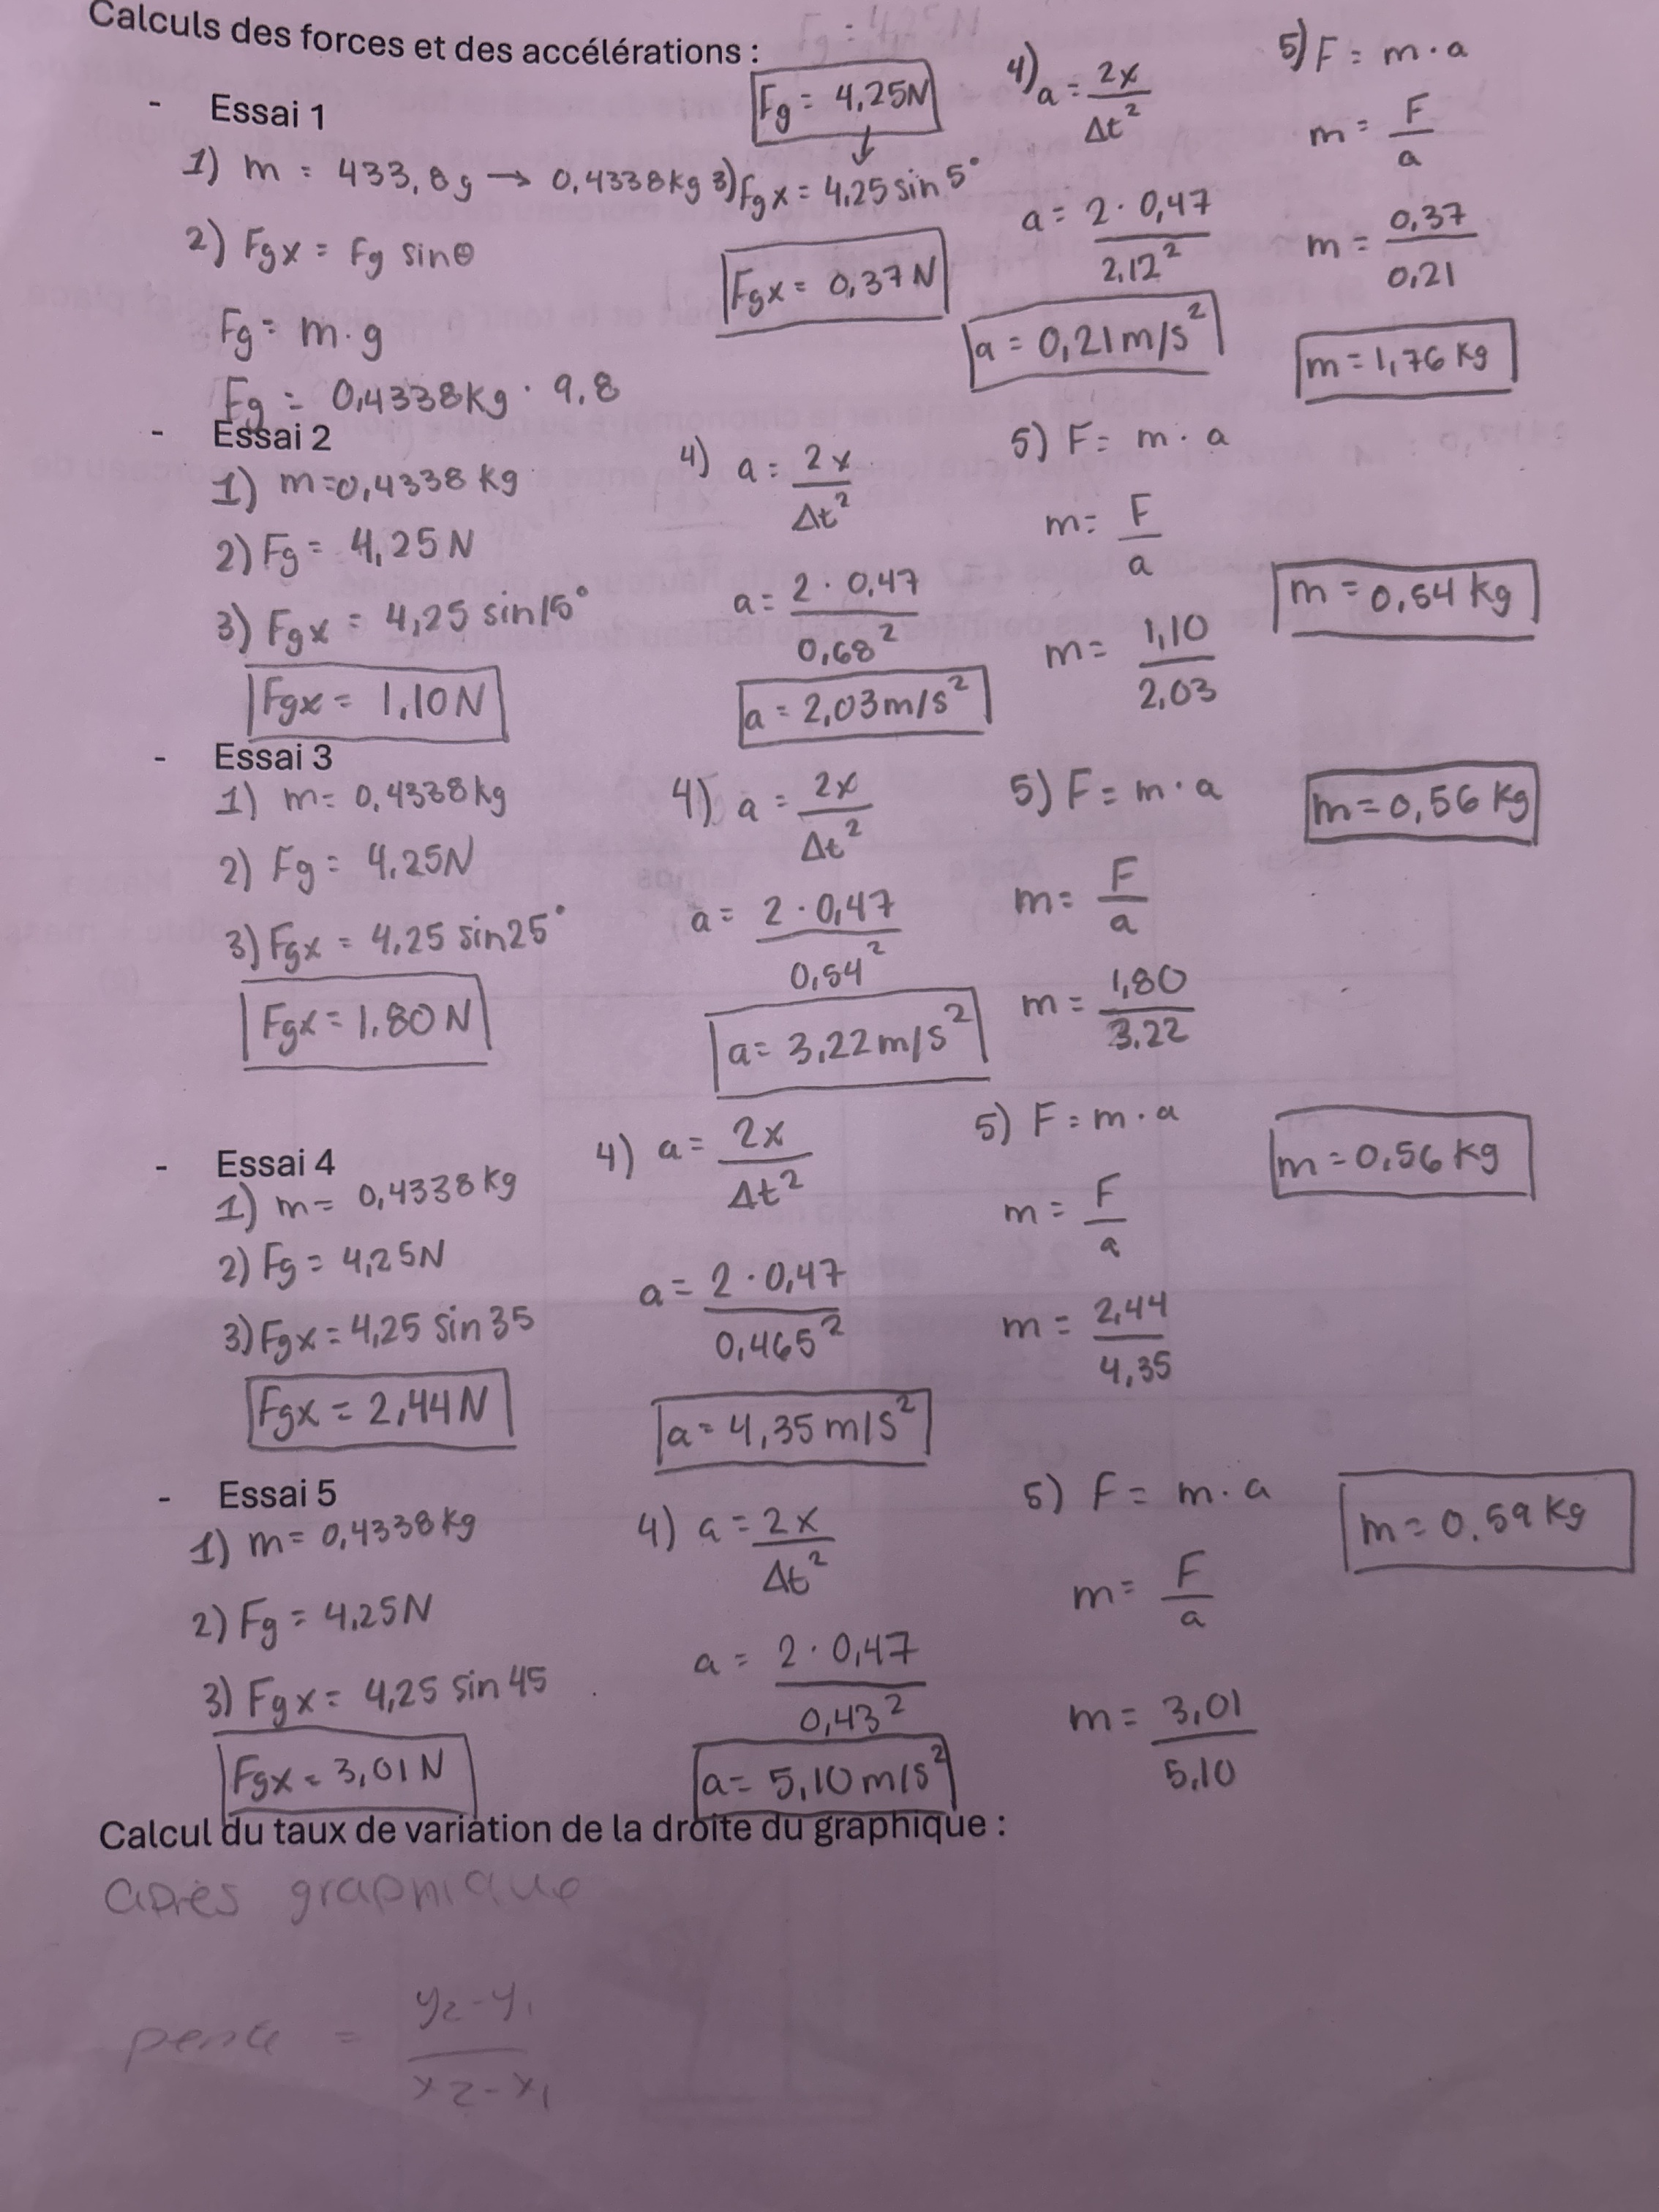 Calculs des forces et des accélérations :
- Essai 1
1) m = 433,8g → 0,4338kg
2) Fgx = Fg sinθ
Fg = m · g
Fg = 0,4338kg · 9,8
Fg = 4,25N
3) Fgx = 4,25 sin 5°
Fgx = 0,37N
4) a = 2x / Δt²
a = 2 · 0,47 / 2,12²
a = 0,21 m/s²
5) F = m · a
m = F / a
m = 0,37 / 0,21
m = 1,76 kg
- Essai 2
1) m = 0,4338 kg
2) Fg = 4,25N
3) Fgx = 4,25 sin15°
Fgx = 1,10N
4) a = 2x / Δt²
a = 2 · 0,47 / 0,68²
a = 2,03m/s²
5) F = m · a
m = F / a
m = 1,10 / 2,03
m = 0,54 kg
- Essai 3
1) m = 0,4338kg
2) Fg = 4,25N
3) Fgx = 4,25 sin25°
Fgx = 1,80N
4) a = 2x / Δt²
a = 2 · 0,47 / 0,54²
a = 3,22m/s²
5) F = m · a
m = F / a
m = 1,80 / 3,22
m = 0,56 kg
- Essai 4
1) m = 0,4338kg
2) Fg = 4,25N
3) Fgx = 4,25 sin 35
Fgx = 2,44N
4) a = 2x / Δt²
a = 2 · 0,47 / 0,465²
a = 4,35 m/s²
5) F = m · a
m = F / a
m = 2,44 / 4,35
m = 0,56 kg
- Essai 5
1) m = 0,4338kg
2) Fg = 4,25N
3) Fgx = 4,25 sin 45
Fgx = 3,01N
4) a = 2x / Δt²
a = 2 · 0,47 / 0,43²
a = 5,10m/s²
5) F = m · a
m = F / a
m = 3,01 / 5,10
m = 0,59 kg
Calcul du taux de variation de la droite du graphique :
après graphique
pente = y2-y1 / x2-x1